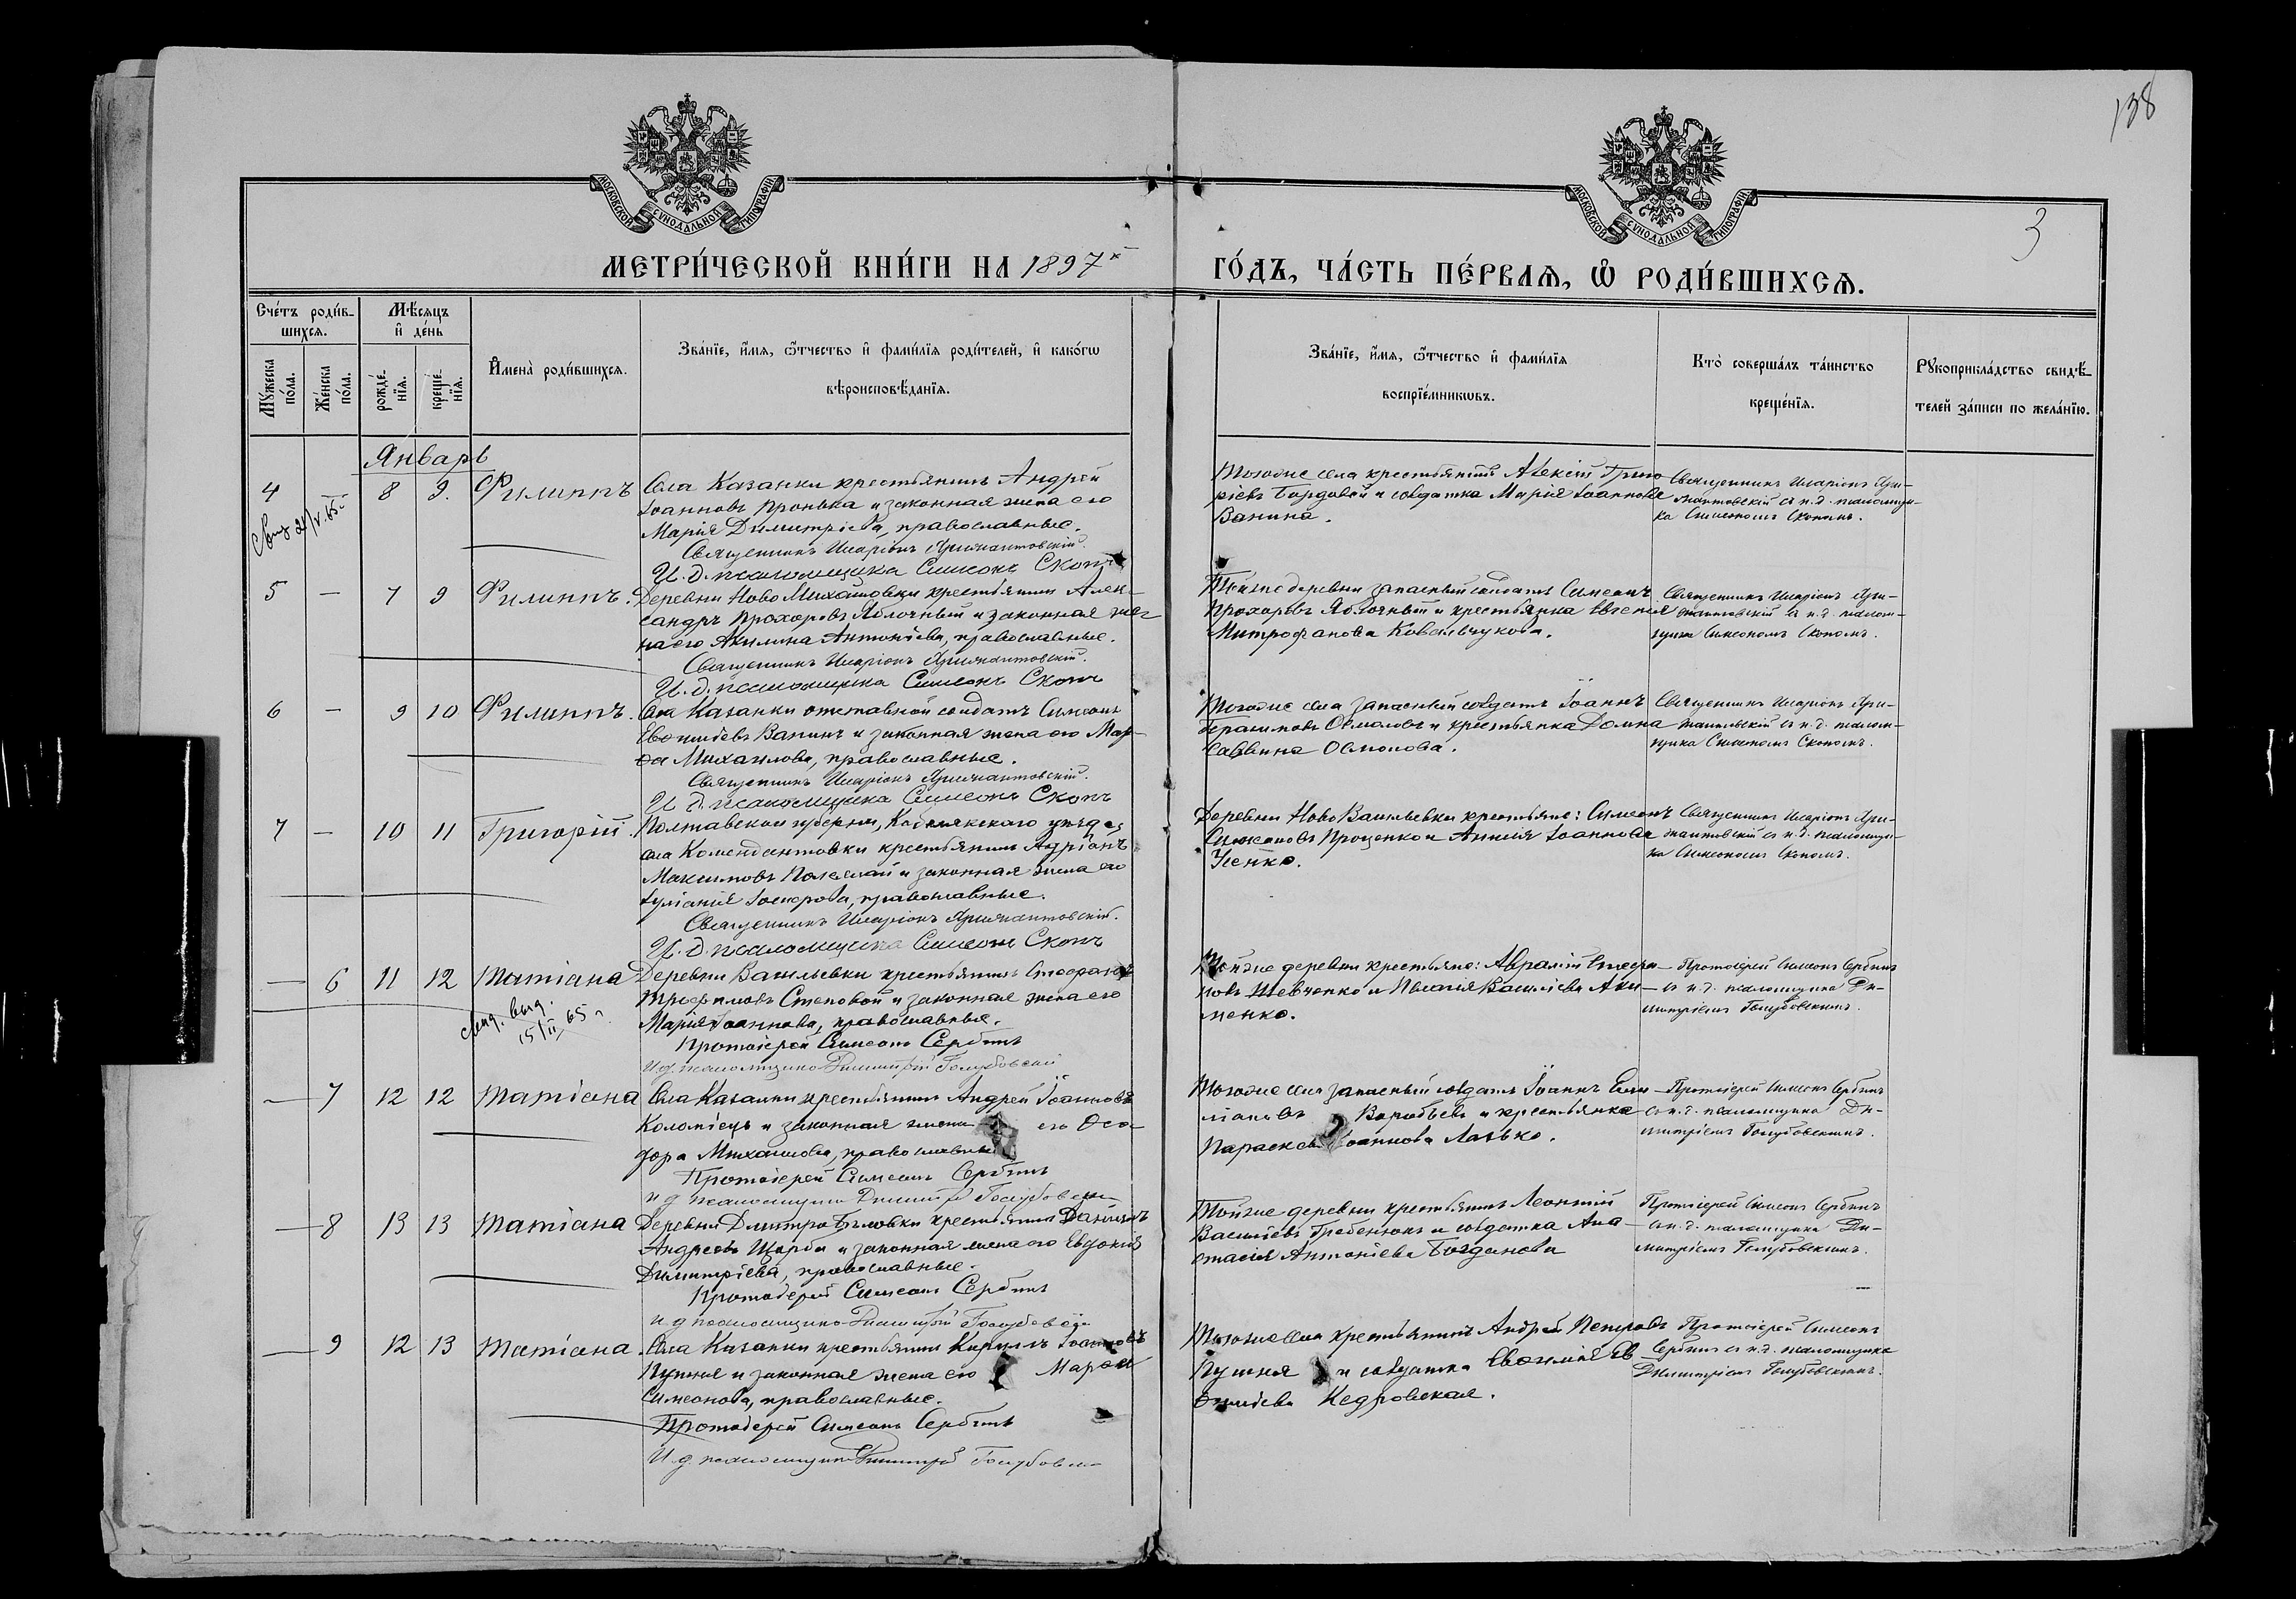 138
3
МОСКОВСКОЙ СУНОДАЛЬНОЙ ТИПОГРАФІИ
МОСКОВСКОЙ СУНОДАЛЬНОЙ ТИПОГРАФІИ
МЕТРИ́ЧЕСКОЙ КНИ́ГИ НА 1897
ГО́ДЪ, ЧА́СТЬ ПЕ́РВАѦ, Ѡ҆ РОДИ́ВШИХСѦ.
Сче́тъ роди́в-
шихсѧ.
Мѣ́сѧцъ
и҆ де́нь
Мꙋ́жеска по́ла.
Же́нска по́ла.
рожде́-
нїѧ.
креще́-
нїѧ.
И҆мена̀ роди́вшихсѧ.
Зва́нїе, и҆́мѧ, ѻ҆́тчество и҆ фами́лїѧ роди́телей, и҆ како́гѡ
вѣроисповѣ́данїѧ.
Зва́нїе, и҆́мѧ, ѻ҆́тчество и҆ фами́лїѧ
воспрїе́мникѡвъ.
Кто̀ соверша́лъ та́инство
креще́нїѧ.
Рꙋкоприкла́дство свидѣ́-
телей за́писи по жела́нїю.
Январь
4 8 9. Филиппъ
Села Казанки крестьянинъ Андрей
Іоанновъ Пронька и законная жена его
Марія Димитріева, православные.
Священникъ Иларіонъ
И. д. псаломщика Симеонъ Скопъ
Тогоже села крестьянинъ Алексій Григо
ріевъ Бардовой и солдатка Марія Іоаннова
Ванина.
Священникъ Иларіонъ
съ и.д. псаломщи-
ка Симеономъ Скопомъ.
5 — 7 9 Филиппъ.
Деревни Ново Михайловки крестьянинъ Алек-
сандръ Прохоровъ Яблочный и законная же-
на его Акилина Антоніева, православные.
Священникъ Иларіонъ
И. д. псаломщика Симеонъ Скопъ
Тойже деревни запасный солдатъ Симеонъ
Прохоровъ Яблочный и крестьянка Евгенія
Митрофанова Ковальчукова.
Священникъ Иларіонъ
съ и.д. псалом-
щика Симеономъ Скопомъ.
6 — 9 10 Филиппъ.
Села Казанки отставной солдатъ Симеонъ
Евфиміевъ Ванинъ и законная жена его Мар-
фа Михаилова, православные.
Священникъ Иларіонъ
И. д. псаломщика Симеонъ Скопъ
Тогоже села запасный солдатъ Іоаннъ
Герасимовъ Осмоловъ и крестьянка Домна
Саввина Осмолова.
Священникъ Иларіонъ
съ и.д. псалом-
щика Симеономъ Скопомъ.
7 — 10 11 Григорій.
Полтавской губерніи, Кобелякскаго уѣзда,
села Комендантовки крестьянинъ Адріанъ
Максимовъ и законная жена его
Іуліанія православные.
Священникъ Иларіонъ
И. д. псаломщика Симеонъ Скопъ
Деревни Ново Васильевки крестьяне: Симеонъ
Симеоновъ Проценко и Анисія Іоаннова
Усенко.
Священникъ Иларіонъ
съ и.д. псаломщи-
ка Симеономъ Скопомъ.
— 6 11 12 Татіана
Деревни Васильевки крестьянинъ Стефанъ
Трофимовъ Степовой и законная жена его
Марія Іоаннова, православные.
Протоіерей Симеонъ Сербинъ
И.д. псаломщика Димитрій Голубовскій
свид. выд.
15/II 65 г.
Тойже деревни крестьяне: Аврамій Стефа-
новъ Шевченко и Пелагія Василіева Аки-
менко.
Протоіерей Симеонъ Сербинъ
съ и.д. псаломщика Ди-
митріемъ Голубовскимъ.
— 7 12 12 Татіана
Села Казанки крестьянинъ Андрей Іоанновъ
Коломіецъ и законная жена его Ѳео-
дора Михаилова, православные
Протоіерей Симеонъ Сербинъ
и д псаломщика Димитрій Голубовскій
Тогоже села запасный солдатъ Іоаннъ Еми
ліановъ Воробьевъ и крестьянка
Параскева Іоаннова Лазько.
Протоіерей Симеонъ Сербинъ
съ и.д. псаломщика Ди-
митріемъ Голубовскимъ.
— 8 13 13 Татіана
Деревни Дмитро Бѣловки крестьянинъ Даніилъ
Андреевъ Щерба и законная жена его Евдокія
Димитріева, православные.
Протоіерей Симеонъ Сербинъ
и д псаломщика Димитрій Голубовскій
Тойже деревни крестьянинъ Леонтій
Василіевъ Гребенюкъ и солдатка Ана-
стасія Антоніева Богданова
Протоіерей Симеонъ Сербинъ
съ и.д. псаломщика Ди-
митріемъ Голубовскимъ.
— 9 12 13 Татіана.
Села Казанки крестьянинъ Кириллъ Іоанновъ
Пушня и законная жена его Марфа
Симеонова, православные.
Протоіерей Симеонъ Сербинъ
И д. псаломщика Димитрій Голубовскій
Тогоже села крестьянинъ Андрей Петровъ
Пушня и солдатка Евфимія Ев
фиміева Кедровская.
Протоіерей Симеонъ
Сербинъ съ и.д. псаломщика
Димитріемъ Голубовскимъ.